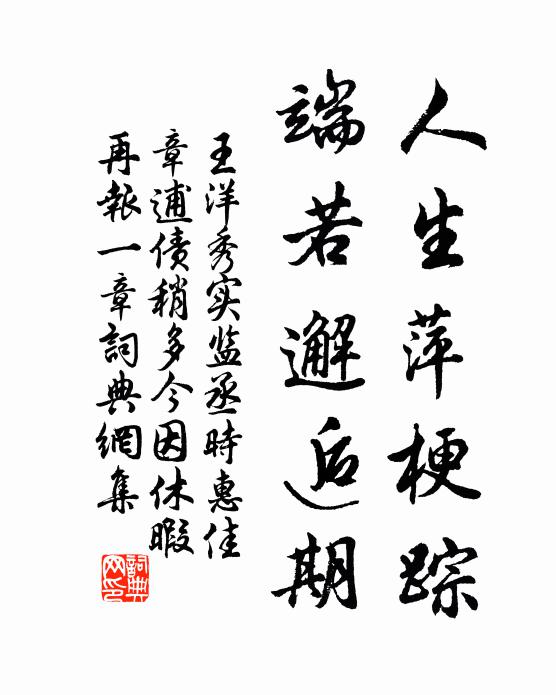 人生萍梗踪
端若邂逅期
王洋秀实监丞時惠佳
章逋债稍多今因休暇
再報一章詞典網集
詞典网印